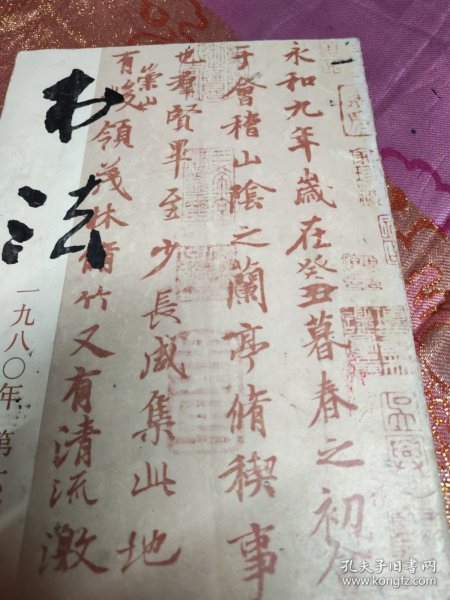 永和九年歲在癸丑暮春之初會
于會稽山陰之蘭亭脩稧事
也羣賢畢至少長咸集此地
有崇山峻領茂林脩竹又有清流激
书法
一九八〇年 第
孔夫子旧书网
www.kongfz.com